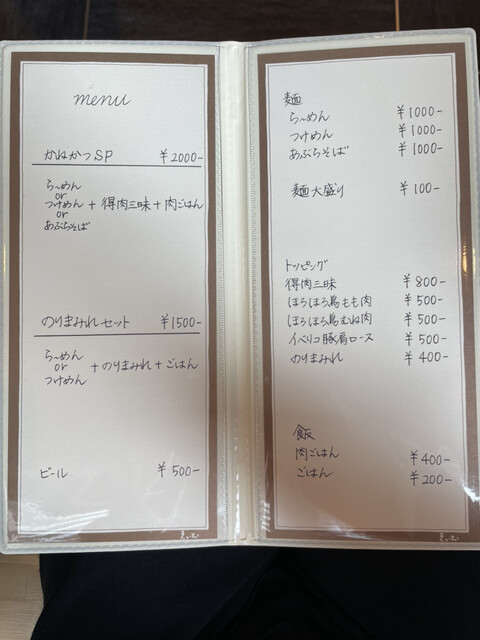 menu
かねかつSP ¥2000-
ら〜めん
or
つけめん + 得肉三昧 + 肉ごはん
or
あぶらそば
のりまみれセット ¥1500-
ら〜めん
or + のりまみれ + ごはん
つけめん
ビール ¥500-
麺
ら〜めん ¥1000-
つけめん ¥1000-
あぶらそば ¥1000-
麺大盛り ¥100-
トッピング
得肉三昧 ¥800-
ほろほろ鳥もも肉 ¥500-
ほろほろ鳥むね肉 ¥500-
イベリコ豚肩ロース ¥500-
のりまみれ ¥400-
飯
肉ごはん ¥400-
ごはん ¥200-